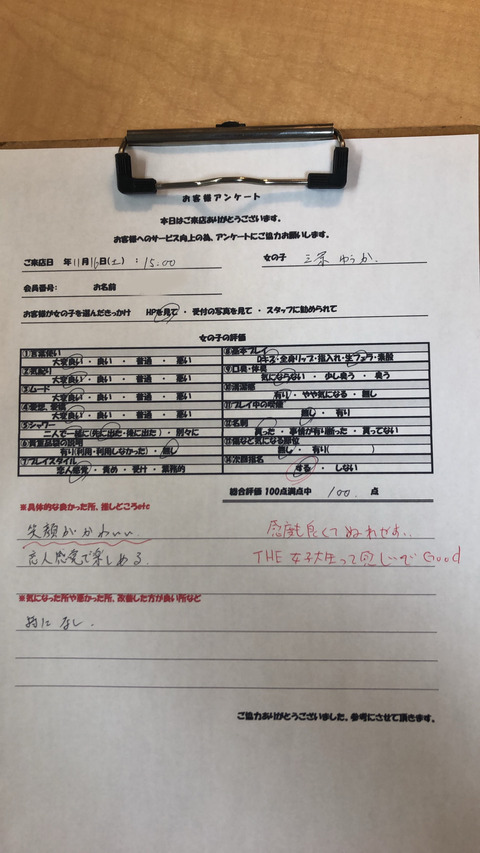 お客様アンケート
本日はご来店ありがとうございます。
お客様へのサービス向上の為、アンケートにご協力お願いします。
ご来店日 年11月16日(土) : 15:00 女の子 三条 ゆうか
会員番号: お名前
お客様が女の子を選んだきっかけ HPを見て ・ 受付の写真を見て ・ スタッフに勧められて
女の子の評価
①言葉使い
大変良い ・ 良い ・ 普通 ・ 悪い
②気配り
大変良い ・ 良い ・ 普通 ・ 悪い
③ムード
大変良い ・ 良い ・ 普通 ・ 悪い
④愛想、
大変良い ・ 良い ・ 普通 ・ 悪い
⑤シャワー
二人で一緒に(先に出た・後に出た) ・ 別々に
有り(利用・利用しなかった) ・ 無し
⑦プレイスタイル
恋人感覚 ・ 責め ・ 受け ・ 業務的
⑧基本プレイ
Dキス・全身リップ・指入れ・生フェラ・素股
⑨口臭・体臭
気にならない ・ 少し臭う ・ 臭う
⑩清潔感
有り ・ やや気になる ・ 無し
⑪プレイ中の喫煙
無し ・ 有り
⑫名刺
貰った ・ 事情が有り断った ・ 貰ってない
⑬傷など気になる部位
無し ・ 有り
⑭次回指名
する ・ しない
総合評価 100点満点中 100. 点
※具体的な良かった所、推しどころetc
笑顔がかわいい
恋人感覚で楽しめる
感度も良くて
THE 女子大生って感じで Good
※気になった所や悪かった所、改善した方が良い所など
特になし.
ご協力ありがとうございました。参考にさせて頂きます。